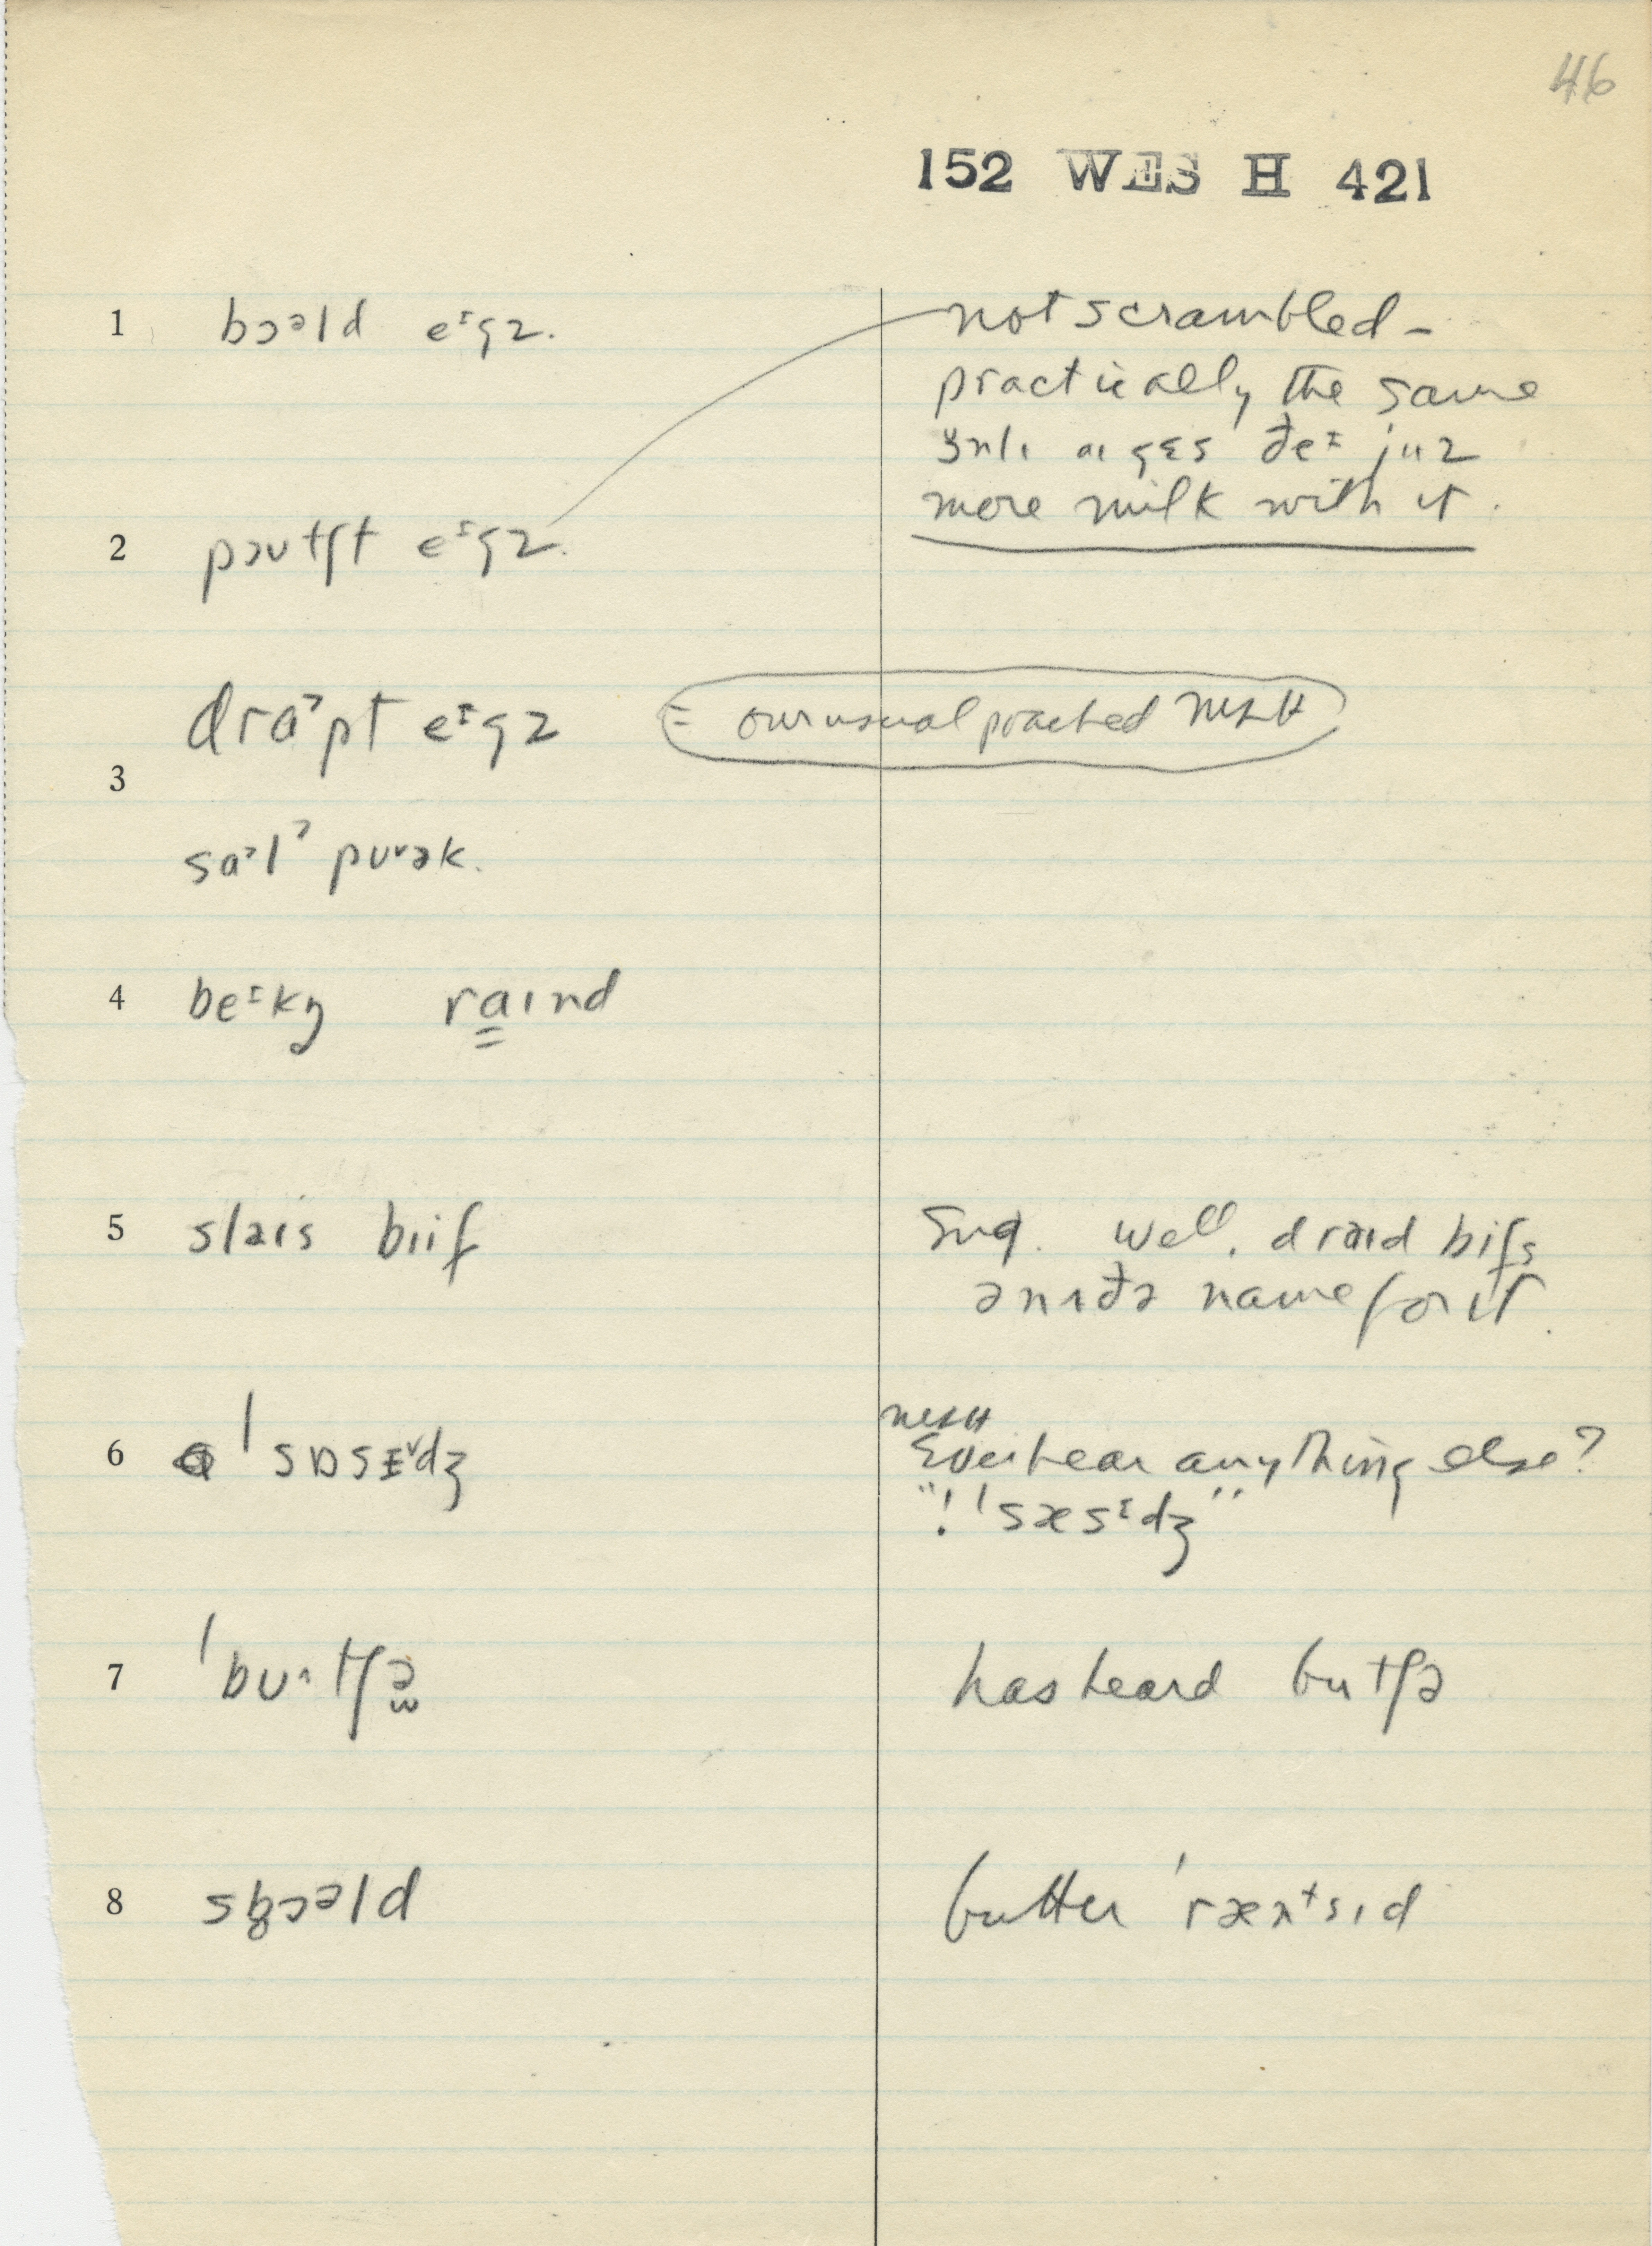 46
152 WES H 421
1 bɔəld eᶦgz.
not scrambled –
practically the same
ɜnlɪ aɪ gɛs ðeᶦ juz
more milk with it.
2 pɔʊtʃt eᶦgz.
drɑˀpt eᶦgz
= our usual poached NESH
3
sɑˀlˀ pʊᵛək.
4 beᶦkŋ raɪnd
5 slaɪs bɪif
Sug. well, draɪd bifs
ənʌðə name for it.
6 ˈsɒsɪᵛdʒ
NESH
Ever hear anything else?
"! ˈsæsᶦdʒ"
7 ˈbʊ^tʃə
has heard butʃə
8 spɔəld
butter ˈræntsɪd